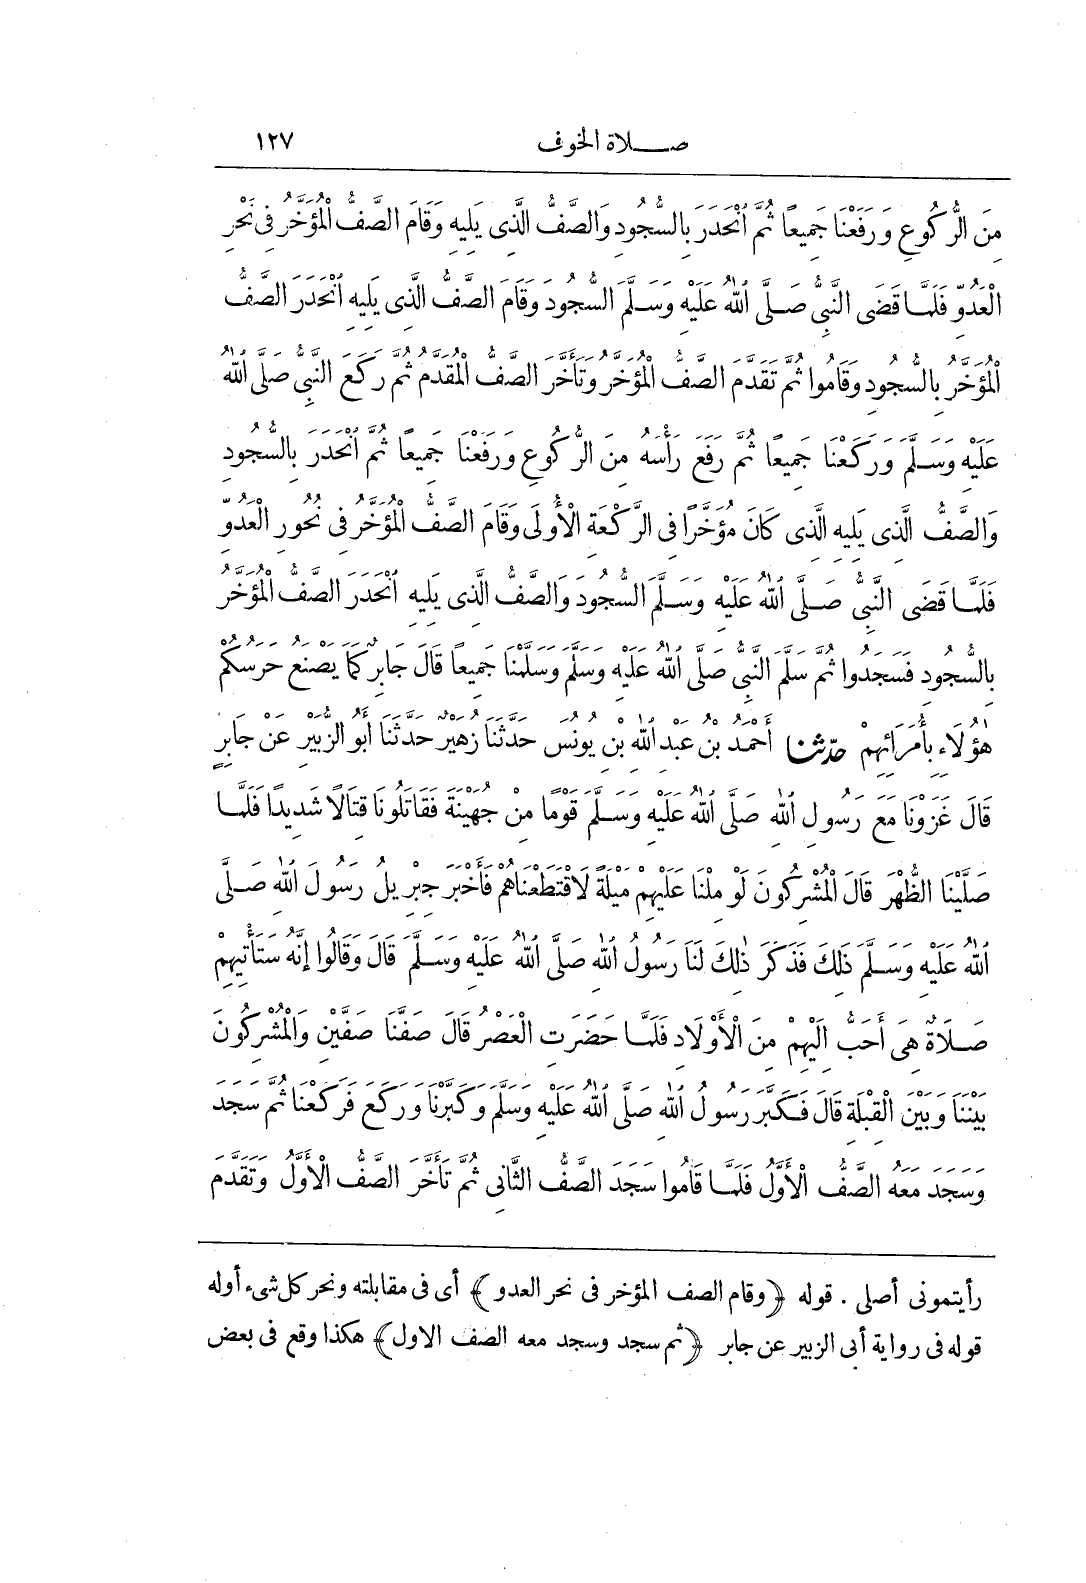 صلاة الخوف ١٢٧
مِنَ الرُّكُوعِ وَرَفَعْنَا جَمِيعًا ثُمَّ انْحَدَرَ بِالسُّجُودِ وَالصَّفُّ الَّذِى يَلِيهِ وَقَامَ الصَّفُّ الْمُؤَخَّرُ فِى نَحْرِ
الْعَدُوِّ فَلَمَّا قَضَى النَّبِىُّ صَلَّى اللهُ عَلَيْهِ وَسَلَّمَ السُّجُودَ وَقَامَ الصَّفُّ الَّذِى يَلِيهِ انْحَدَرَ الصَّفُّ
الْمُؤَخَّرُ بِالسُّجُودِ وَقَامُوا ثُمَّ تَقَدَّمَ الصَّفُّ الْمُؤَخَّرُ وَتَأَخَّرَ الصَّفُّ الْمُقَدَّمُ ثُمَّ رَكَعَ النَّبِىُّ صَلَّى اللهُ
عَلَيْهِ وَسَلَّمَ وَرَكَعْنَا جَمِيعًا ثُمَّ رَفَعَ رَأْسَهُ مِنَ الرُّكُوعِ وَرَفَعْنَا جَمِيعًا ثُمَّ انْحَدَرَ بِالسُّجُودِ
وَالصَّفُّ الَّذِى يَلِيهِ الَّذِى كَانَ مُؤَخَّرًا فِى الرَّكْعَةِ الْأُولَى وَقَامَ الصَّفُّ الْمُؤَخَّرُ فِى نُحُورِ الْعَدُوِّ
فَلَمَّا قَضَى النَّبِىُّ صَلَّى اللهُ عَلَيْهِ وَسَلَّمَ السُّجُودَ وَالصَّفُّ الَّذِى يَلِيهِ انْحَدَرَ الصَّفُّ الْمُؤَخَّرُ
بِالسُّجُودِ فَسَجَدُوا ثُمَّ سَلَّمَ النَّبِىُّ صَلَّى اللهُ عَلَيْهِ وَسَلَّمَ وَسَلَّمْنَا جَمِيعًا قَالَ جَابِرٌ كَمَا يَصْنَعُ حَرَسُكُمْ
هٰؤُلَاءِ بِأُمَرَائِهِمْ حدثنا أَحْمَدُ بْنُ عَبْدِ اللهِ بْنِ يُونُسَ حَدَّثَنَا زُهَيْرٌ حَدَّثَنَا أَبُو الزُّبَيْرِ عَنْ جَابِرٍ
قَالَ غَزَوْنَا مَعَ رَسُولِ اللهِ صَلَّى اللهُ عَلَيْهِ وَسَلَّمَ قَوْمًا مِنْ جُهَيْنَةَ فَقَاتَلُونَا قِتَالًا شَدِيدًا فَلَمَّا
صَلَّيْنَا الظُّهْرَ قَالَ الْمُشْرِكُونَ لَوْ مِلْنَا عَلَيْهِمْ مَيْلَةً لَاقْتَطَعْنَاهُمْ فَأَخْبَرَ جِبْرِيلُ رَسُولَ اللهِ صَلَّى
اللهُ عَلَيْهِ وَسَلَّمَ ذَلِكَ فَذَكَرَ ذٰلِكَ لَنَا رَسُولُ اللهِ صَلَّى اللهُ عَلَيْهِ وَسَلَّمَ قَالَ وَقَالُوا إِنَّهُ سَتَأْتِيهِمْ
صَلَاةٌ هِىَ أَحَبُّ إِلَيْهِمْ مِنَ الْأَوْلَادِ فَلَمَّا حَضَرَتِ الْعَصْرُ قَالَ صَفَّنَا صَفَّيْنِ وَالْمُشْرِكُونَ
بَيْنَنَا وَبَيْنَ الْقِبْلَةِ قَالَ فَكَبَّرَ رَسُولُ اللهِ صَلَّى اللهُ عَلَيْهِ وَسَلَّمَ وَكَبَّرْنَا وَرَكَعَ فَرَكَعْنَا ثُمَّ سَجَدَ
وَسَجَدَ مَعَهُ الصَّفُّ الْأَوَّلُ فَلَمَّا قَامُوا سَجَدَ الصَّفُّ الثَّانِى ثُمَّ تَأَخَّرَ الصَّفُّ الْأَوَّلُ وَتَقَدَّمَ
رأيتمونى أصلى . قوله ﴿وقام الصف المؤخر فى نحر العدو﴾ أى فى مقابلته ونحر كل شىء أوله
قوله فى رواية أبى الزبير عن جابر ﴿ثم سجد وسجد معه الصف الاول﴾ هكذا وقع فى بعض